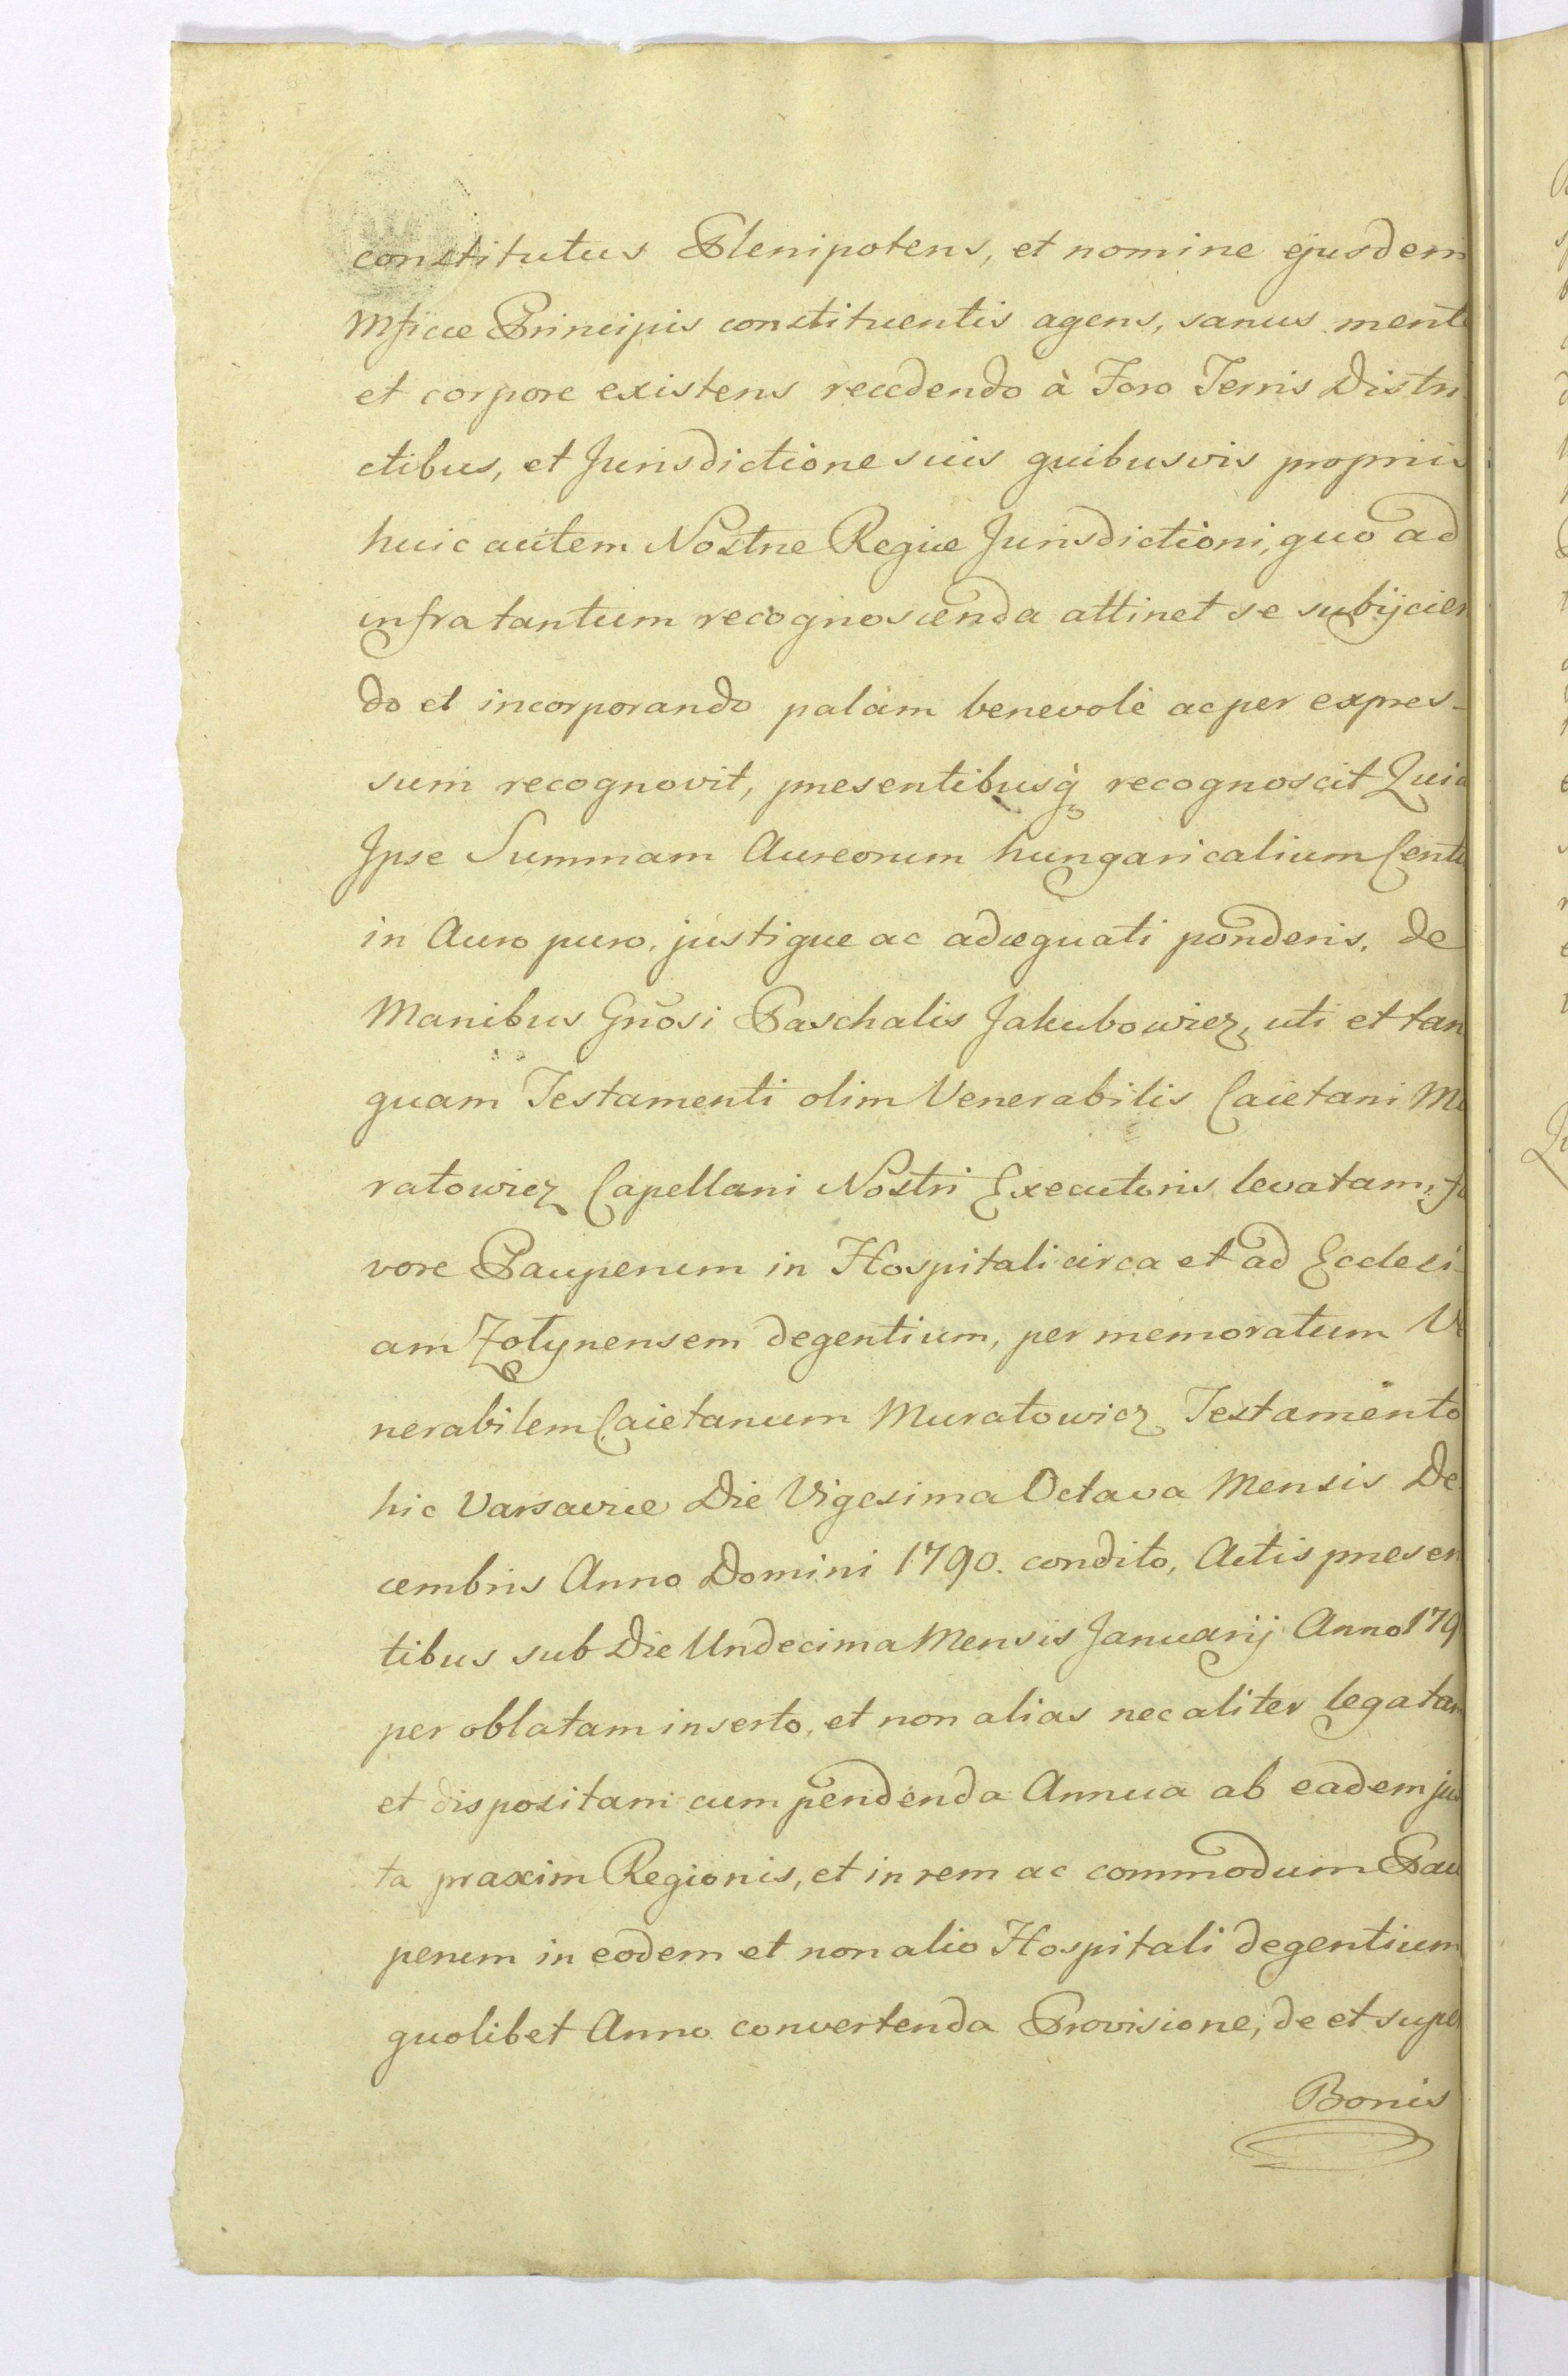 constitutus Plenipotens, et nomine ejusdem
Mficæ Principis constituentis agens, sanus mente
et corpore existens recedendo à Foro Terris Distri
ctibus, et Jurisdictione suis quibusvis propriis
huic autem Nostræ Regiæ Jurisdictioni, quo ad
infra tantum recognoscenda attinet se subijcien
do et incorporando palàm benevolè ac per expres-
sum recognovit, præsentibusq̀ recognoscit Quia
Ipse Summam Aureorum hungaricalium Centu
in Auro puro, justique ac adæquati ponderis, de
Manibus Gnosi Paschalis Jakubowicz, uti et tan
quam Testamenti olim Venerabilis Caietani Mu
ratowicz Capellani Nostri Executoris levatam, fa
vore Pauperum in Hospitali circa et ad Ecclesi-
am Zołynensem degentium, per memoratum Ve
nerabilem Caietanum Muratowicz Testamento
hic Varsaviæ Die Vigesima Octava Mensis De
cembris Anno Domini 1790. condito, Actis præsen
tibus sub Die Undecima Mensis Januarij Anno 179
per oblatam inserto, et non alias nec aliter legatam
et dispositam cum pendenda Annua ab eadem jux
ta praxim Regionis, et in rem ac commodum Pau
perum in eodem et non alio Hospitali degentium
quolibet Anno convertenda Provisione, de et super
Bonis